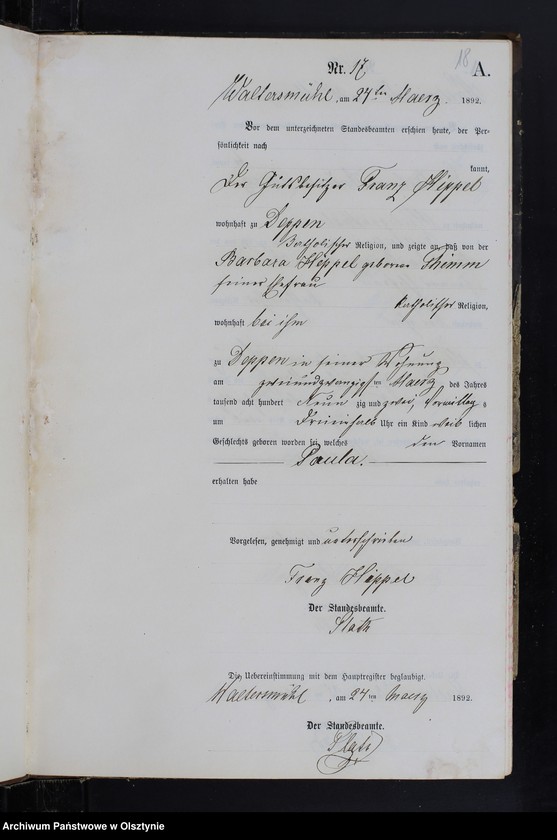 18
Nr. 17 A.
Waltersmühl, am 24ten Maerz 1892.
Vor dem unterzeichneten Standesbeamten erschien heute, der Per-
sönlichkeit nach
kannt,
Der Gutsbesitzer Franz Hippel
wohnhaft zu Deppen
Katholischer Religion, und zeigte an, daß von der
Barbara Hippel geborene Thimm
seiner Ehefrau
katholischer Religion,
wohnhaft bei ihm
zu Deppen in seiner Wohnung
am zweiundzwanzigsten Maerz des Jahres
tausend acht hundert Neun zig und zwei, Vormittag s
um Uhr ein Kind weib lichen
Geschlechts geboren worden sei, welches den Vornamen
Paula.
erhalten habe
Vorgelesen, genehmigt und unterschrieben
Franz Hippel
Der Standesbeamte.
Die Uebereinstimmung mit dem Hauptregister beglaubigt.
Waltersmühl, am 24ten Maerz 1892.
Der Standesbeamte.
Archiwum Państwowe w Olsztynie